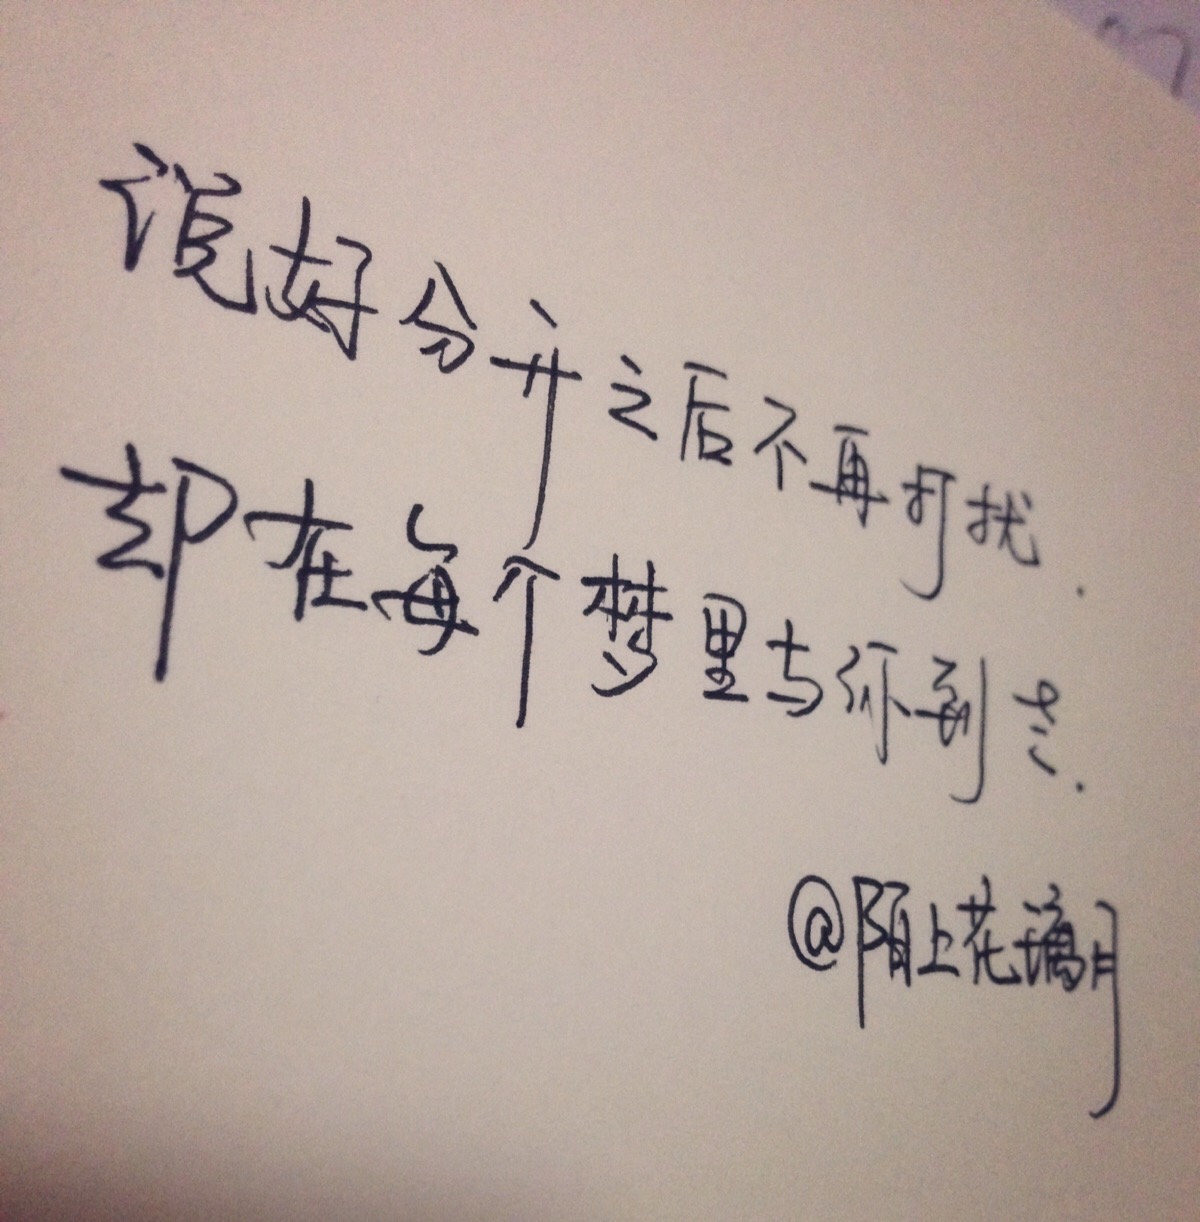 说好分开之后不再打扰.
却在每个梦里与你到老.
@陌上花璃月